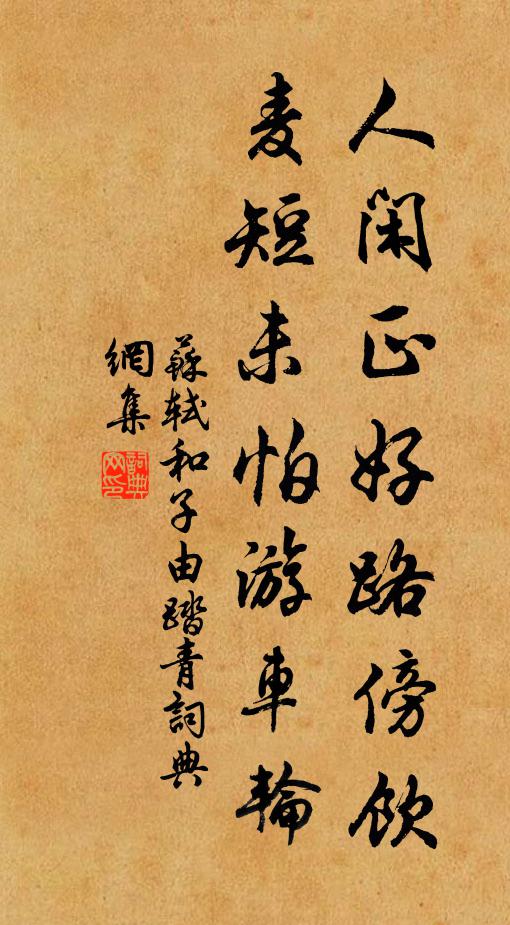 人閑正好路傍飲
麦短未怕游車輪
蘇軾和子由踏青詞典
網集
詞典網印